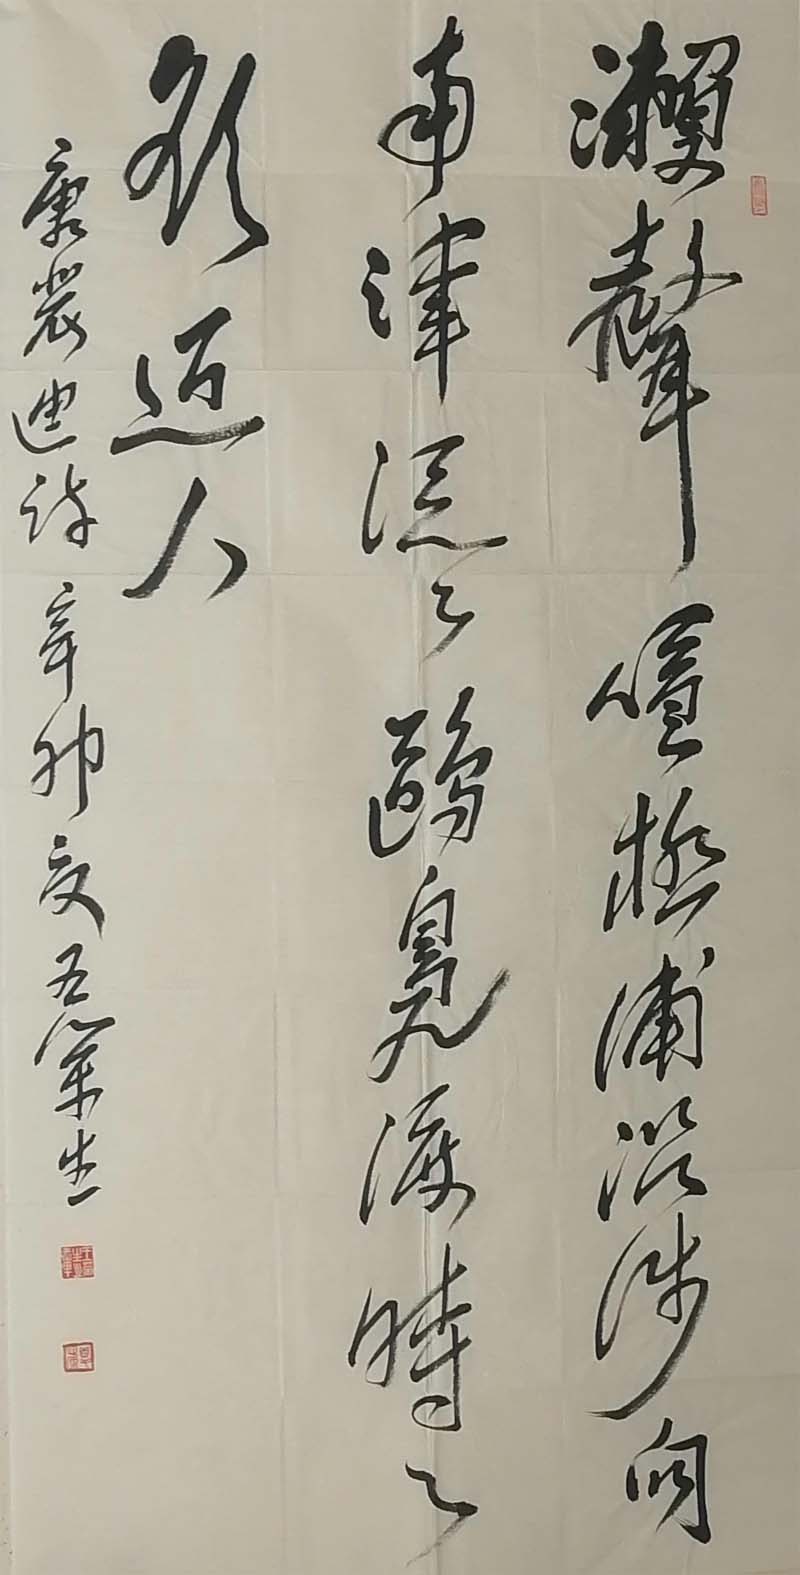 瀨聲喧極浦沿涉向
南津泛々鷗鳧渡時々
欲近人
唐裴迪詩辛卯夏